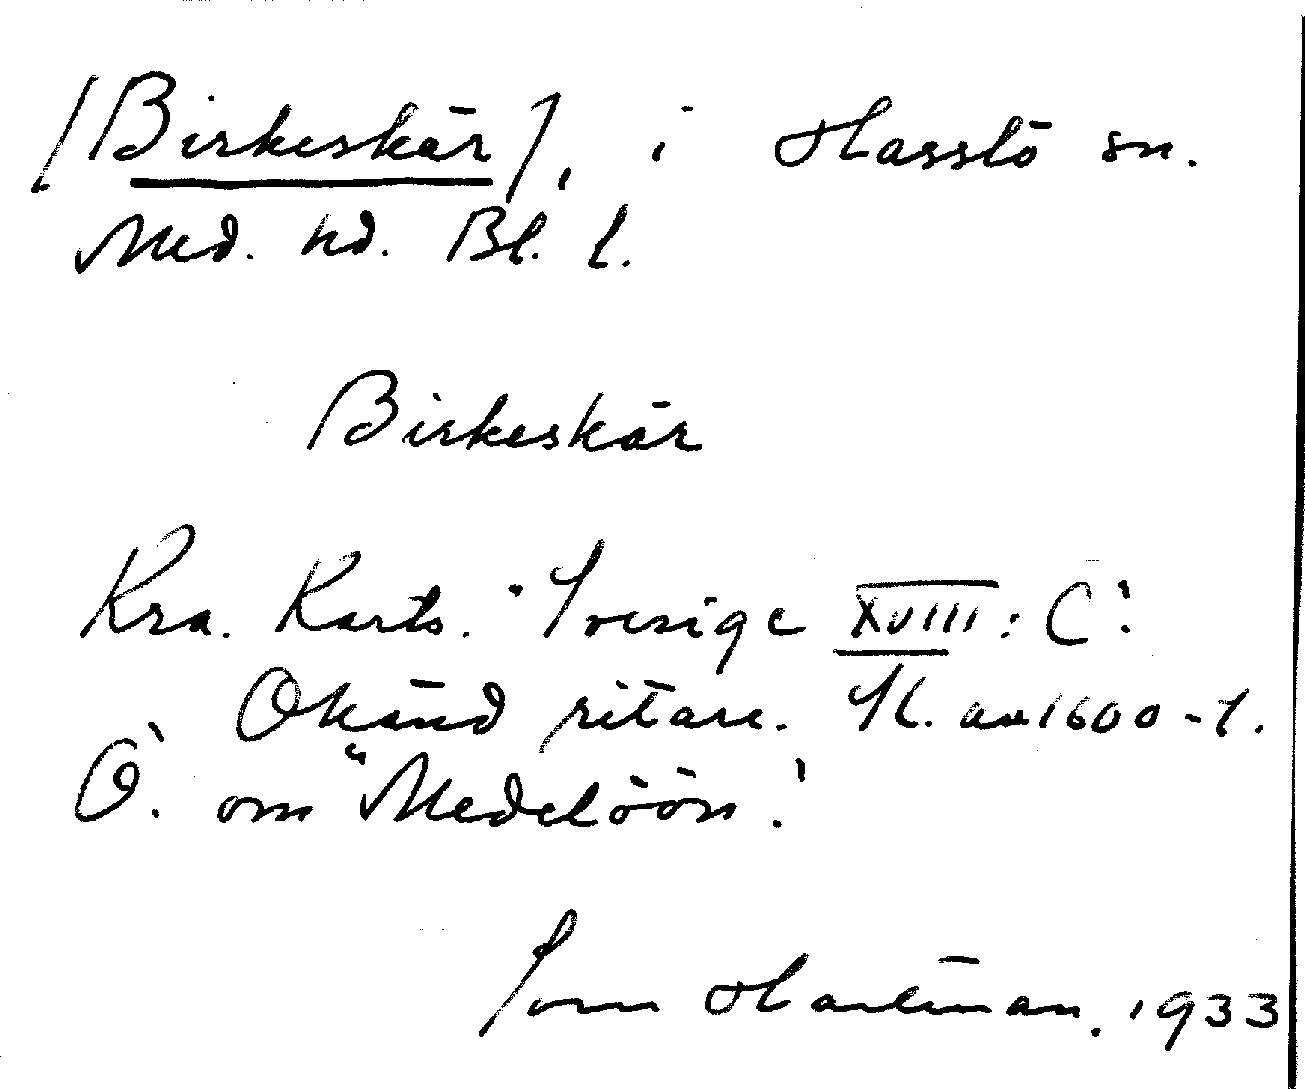 [Birkeskär], i Hasslö sn.
Med. hd. Bl. l.
Birkeskär
Kra. Karts. "Sverige XVIII: C".
Okänd ritare. Sl. av 1600-t.
Ö. om "Medelöön".
Sven Hartman. 1933